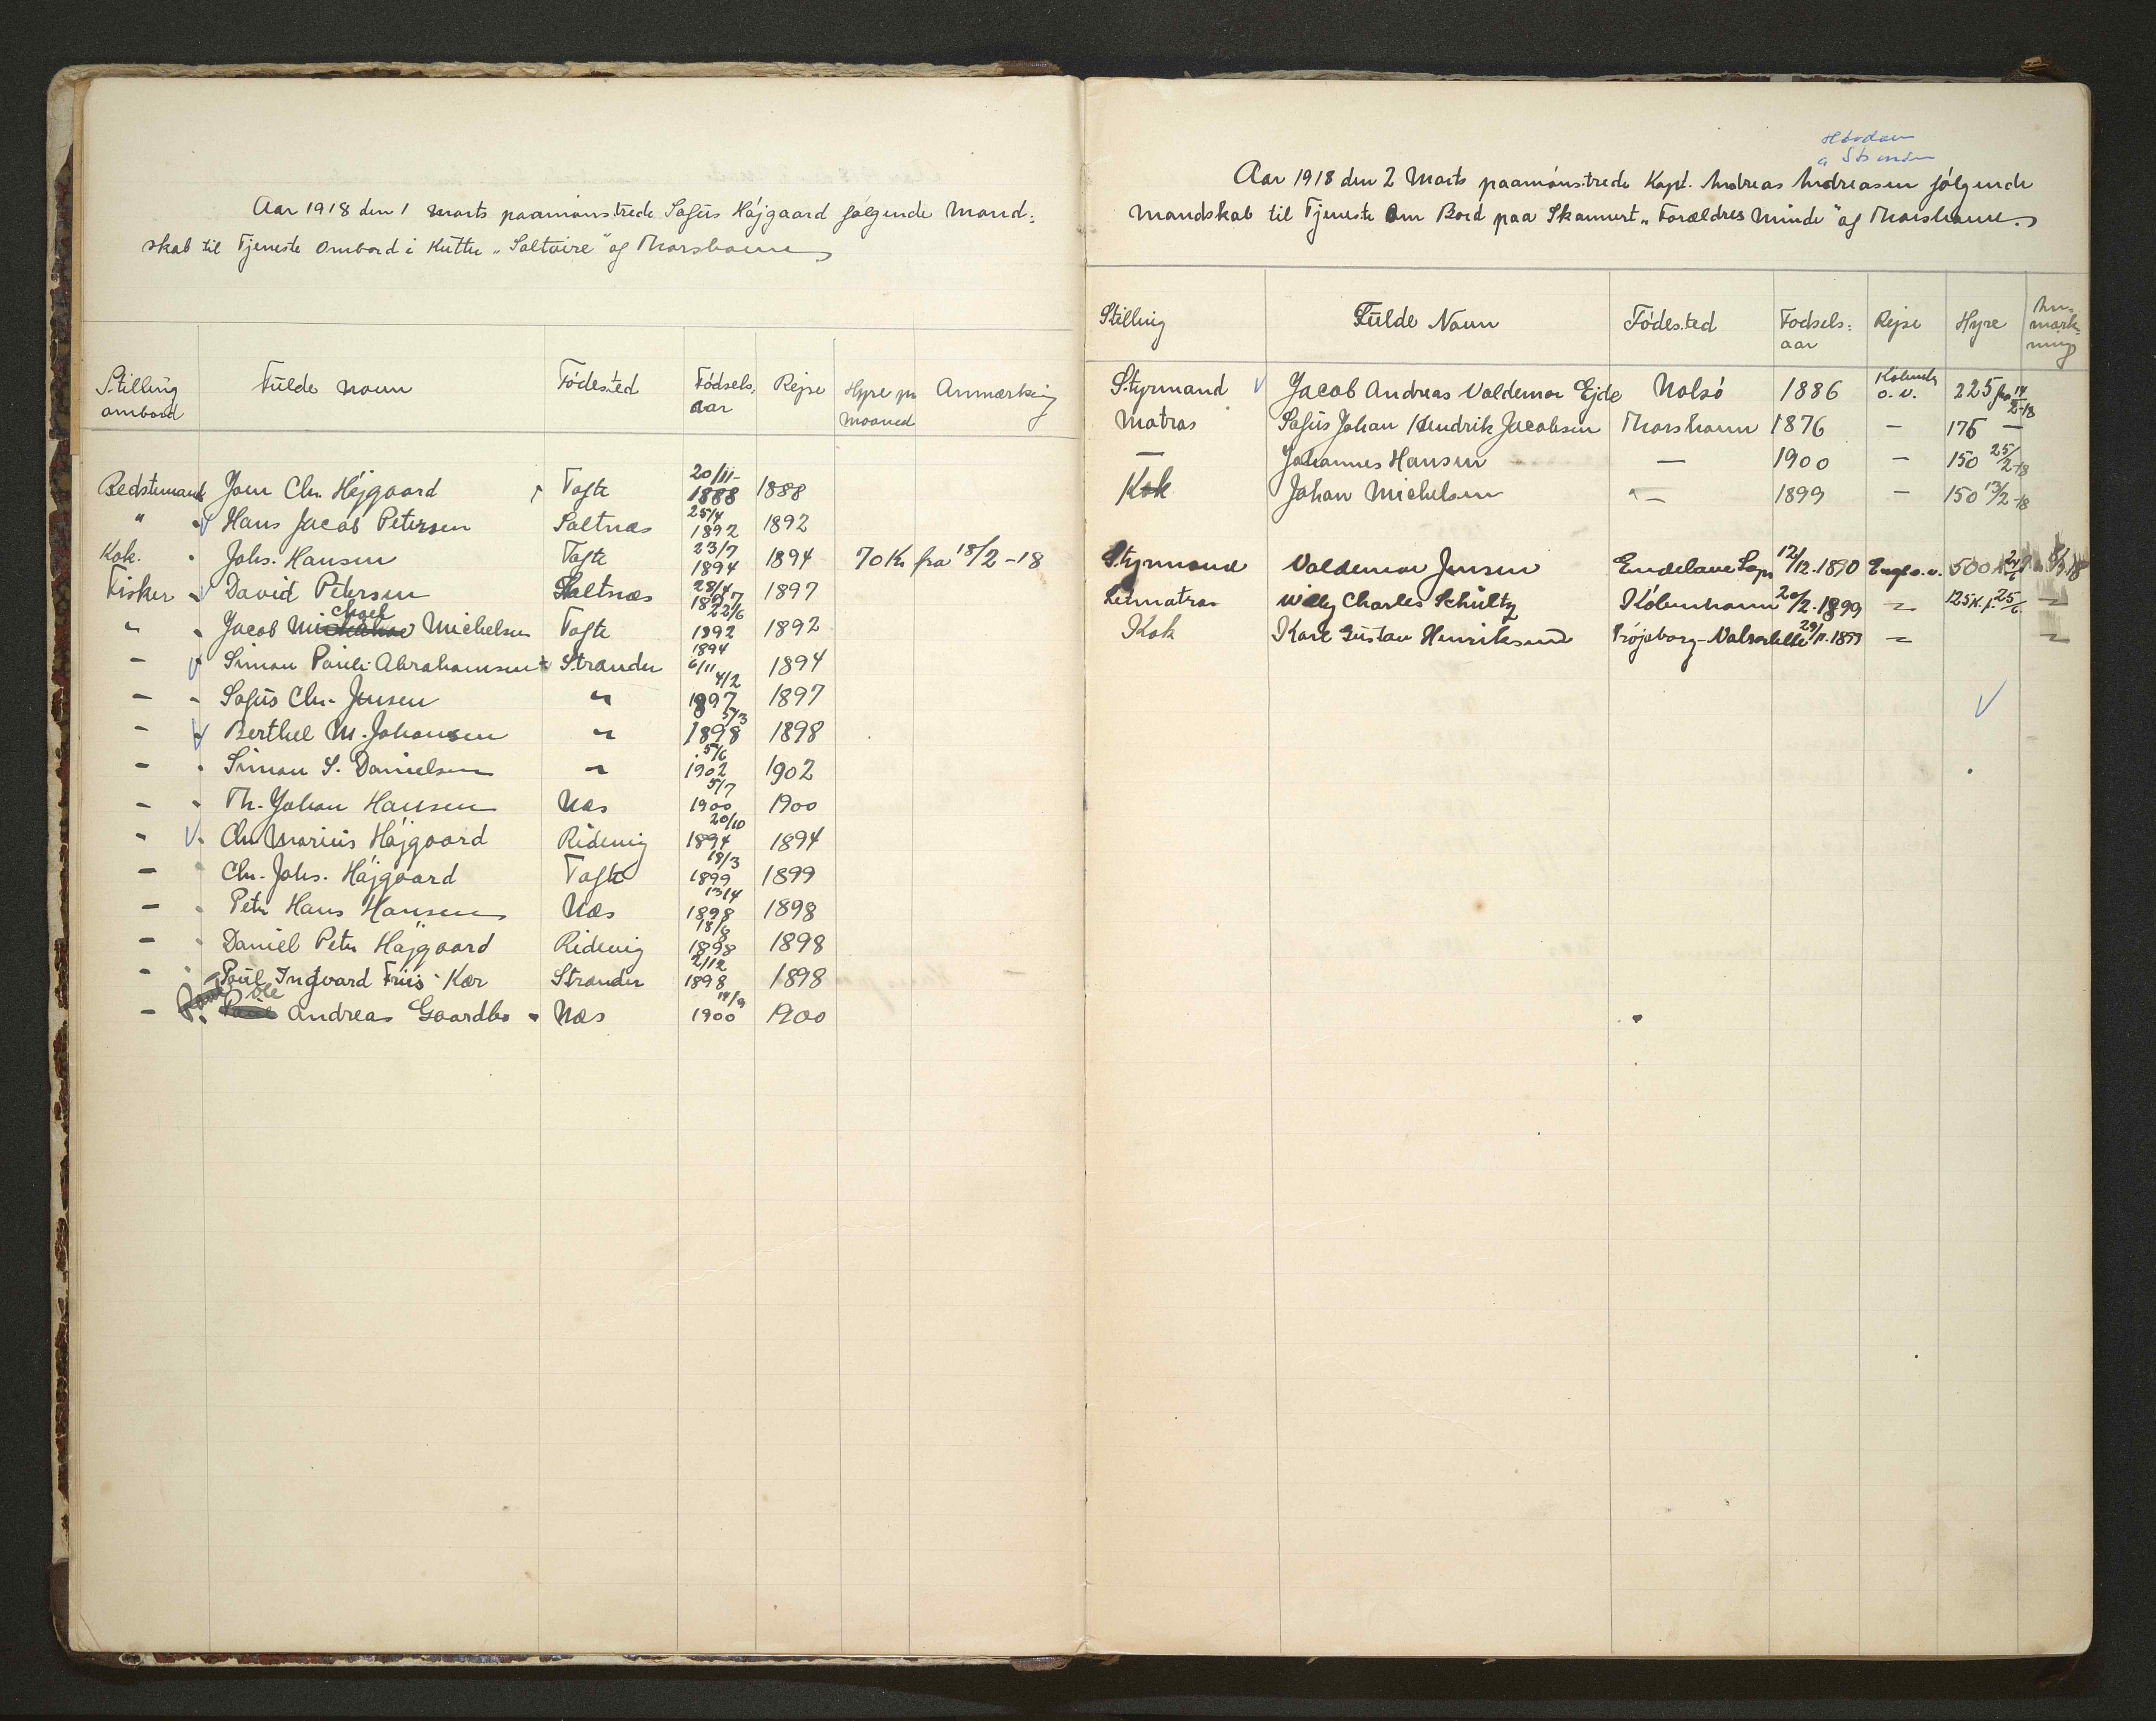 Aar 1918 den 1 Marts paamönstrede Sofus Höjgaard fölgende Mand-
skab til Tjeneste Ombord i Kutter „Saltaire" af Thorshavn
Stilling ombord Fulde Navn Födested Födsels- aar Rejse Hyre pr Maaned Anmærkning
Bedstemand Joen Chr. Höjgaard Tofte 20/11- 1888 1888
" Hans Jacob Petersen Saltnæs 25/4 1892 1892
Kok. Johs. Hansen Tofte 23/7 1894 1894 70 Kr fra 18/2-18
Fisker David Petersen Saltnæs 28/4 1897 1897
" Jacob Michael Michelsen Tofte 22/6 1892 1892
- Simon Pauli Abrahamsen Strander 1894 6/11 1894
- - Sofus Chr. Jensen " 4/2 1897 1897
- Berthel M. Johansen " 5/3 1898 1898
- Simon S. Danielsen " 5/6 1902 1902
- Th. Johan Hansen Næs 5/7 1900 1900
- Chr Marius Höjgaard Ridevig 20/10 1894 1894
- Chr. Johs. Höjgaard Tofte 18/3 1899 1899
- Peter Hans Hansen Næs 13/4 1898 1898
- Daniel Peter Höjgaard Ridevig 18/6 1898 1898
- Poul Ingvard Friis Kær Strander 2/12 1898 1898
- Ole Andreas Gaardbo Næs 14/9 1900 1900
Aar 1918 den 2 Marts paamönstrede Kapt. Andreas Andreasen fölgende
Mandskab til Tjeneste Om Bord paa Skonnert „Forældres Minde" af Thorshavn.
Stilling Fulde Navn Födested Fodsels- aar Rejse Hyre An- mærk- ning
Styrmand Jacob Andreas Valdemar Ejde Nolsö 1886 o. v. 225 fra 14/2-18
Matros Sofus Johan Hendrik Jacobsen Thorshavn 1876 - 175 -
- Johannes Hansen - 1900 - 150 25/2-18
Kok Johan Michelsen - 1899 - 150 13/2-18
Styrmand Valdemar Jensen Endelave Sogn 12/12.1890 Engl o. v. 500
Letmatros Willy Charles Schultz Köbenhavn 20/2.1899 " 125 Kr. f. 25/6 "
Kok Karl Gustav Henriksen 1899 " "